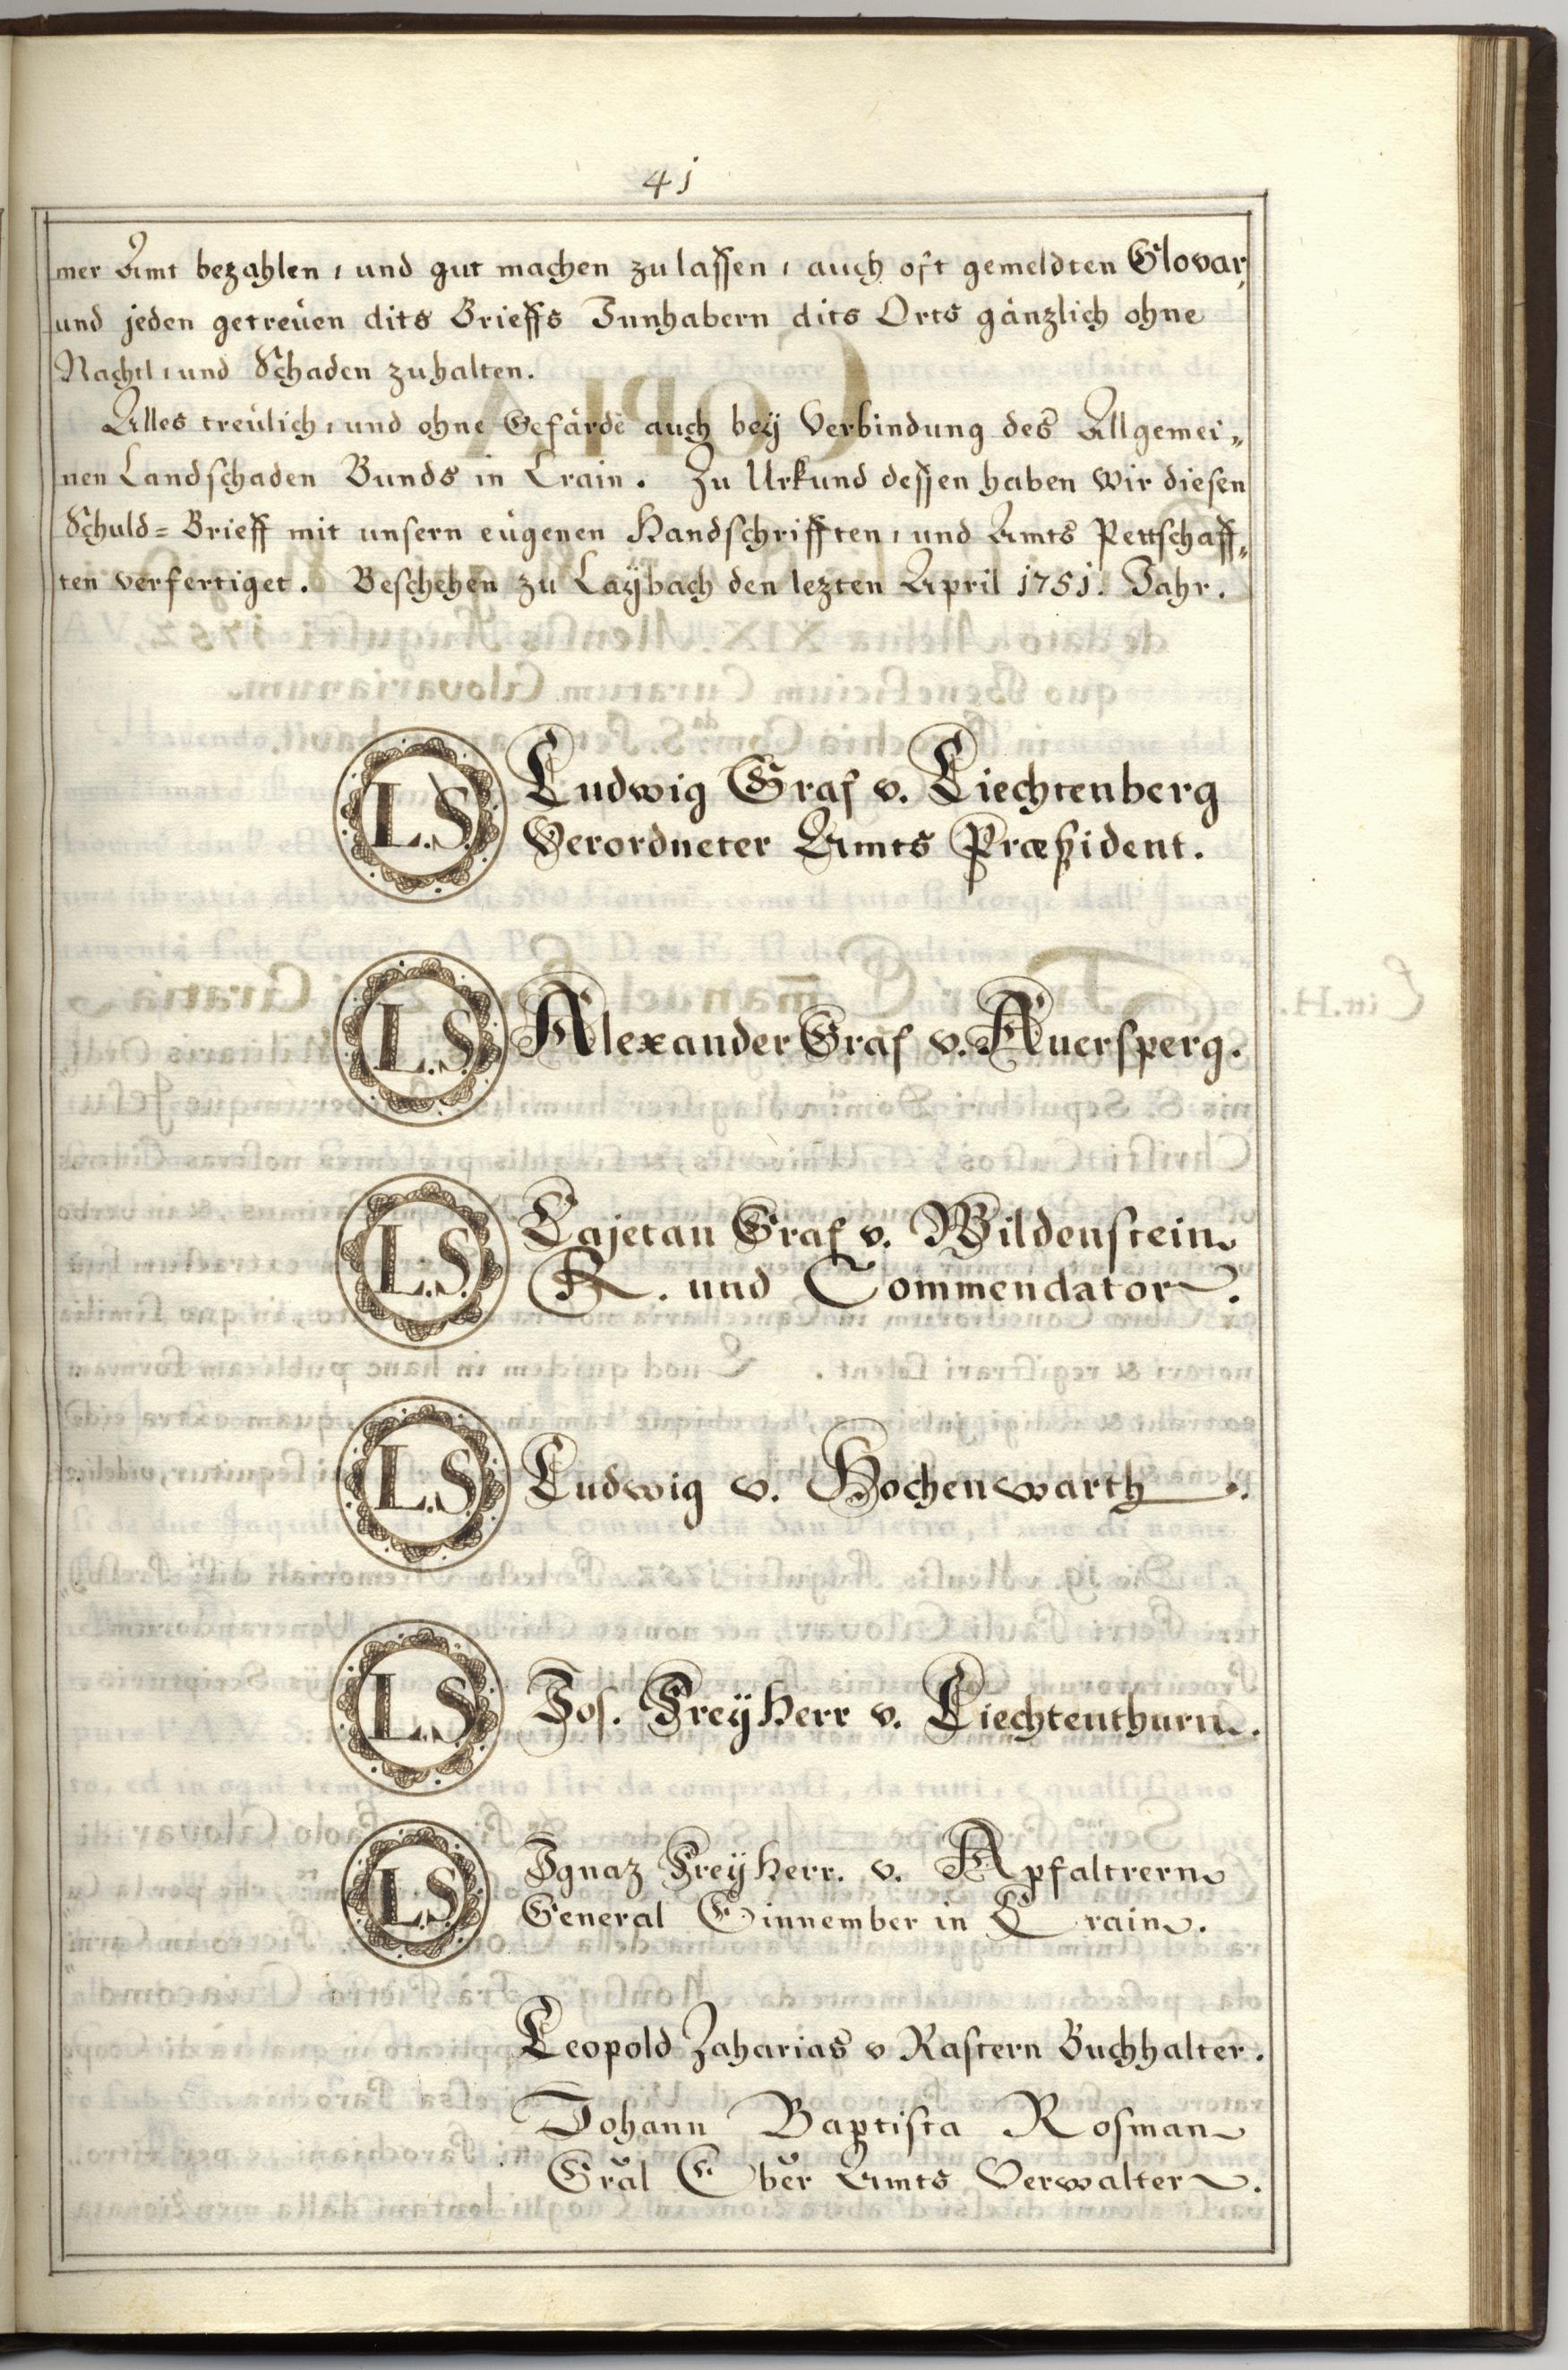 41
mer Amt bezahlen, und gut machen zu lassen, auch oft gemeldten Glovar,
und jeden getreüen dits Brieffs Innhabern dits Orts gänzlich ohne
Nachtl, und Schaden zuhalten.
Alles treülich, und ohne Gefärde auch bey Verbindung des Allgemei„
nen Landschaden Bunds in Crain. Zu Urkund dessen haben Wir diesen
Schuld=Brieff mit unsern eügenen Handschrifften, und Amts Pettschaff„
ten verfertiget. Beschehen zu Laÿbach den lezten April 1751. Jahr.
L.S. Ludwig Graf v. Liechtenberg
Verordneter Amts Præsident.
L.S. Alexander Graf v. Auersperg.
L.S. Cajetan Graf v. Wildenstein
R. und Commendator.
L.S. Ludwig v. Hochenwarth.
L.S. Jos. Freÿherr v. Liechtenthurn.
L.S. Ignaz Freÿherr. v. Apfaltrern
General Einnember in Crain.
Leopold Zaharias v Rastern Buchhalter.
Johann Baptista Rosman
Gräl Ober Amts Verwalter.